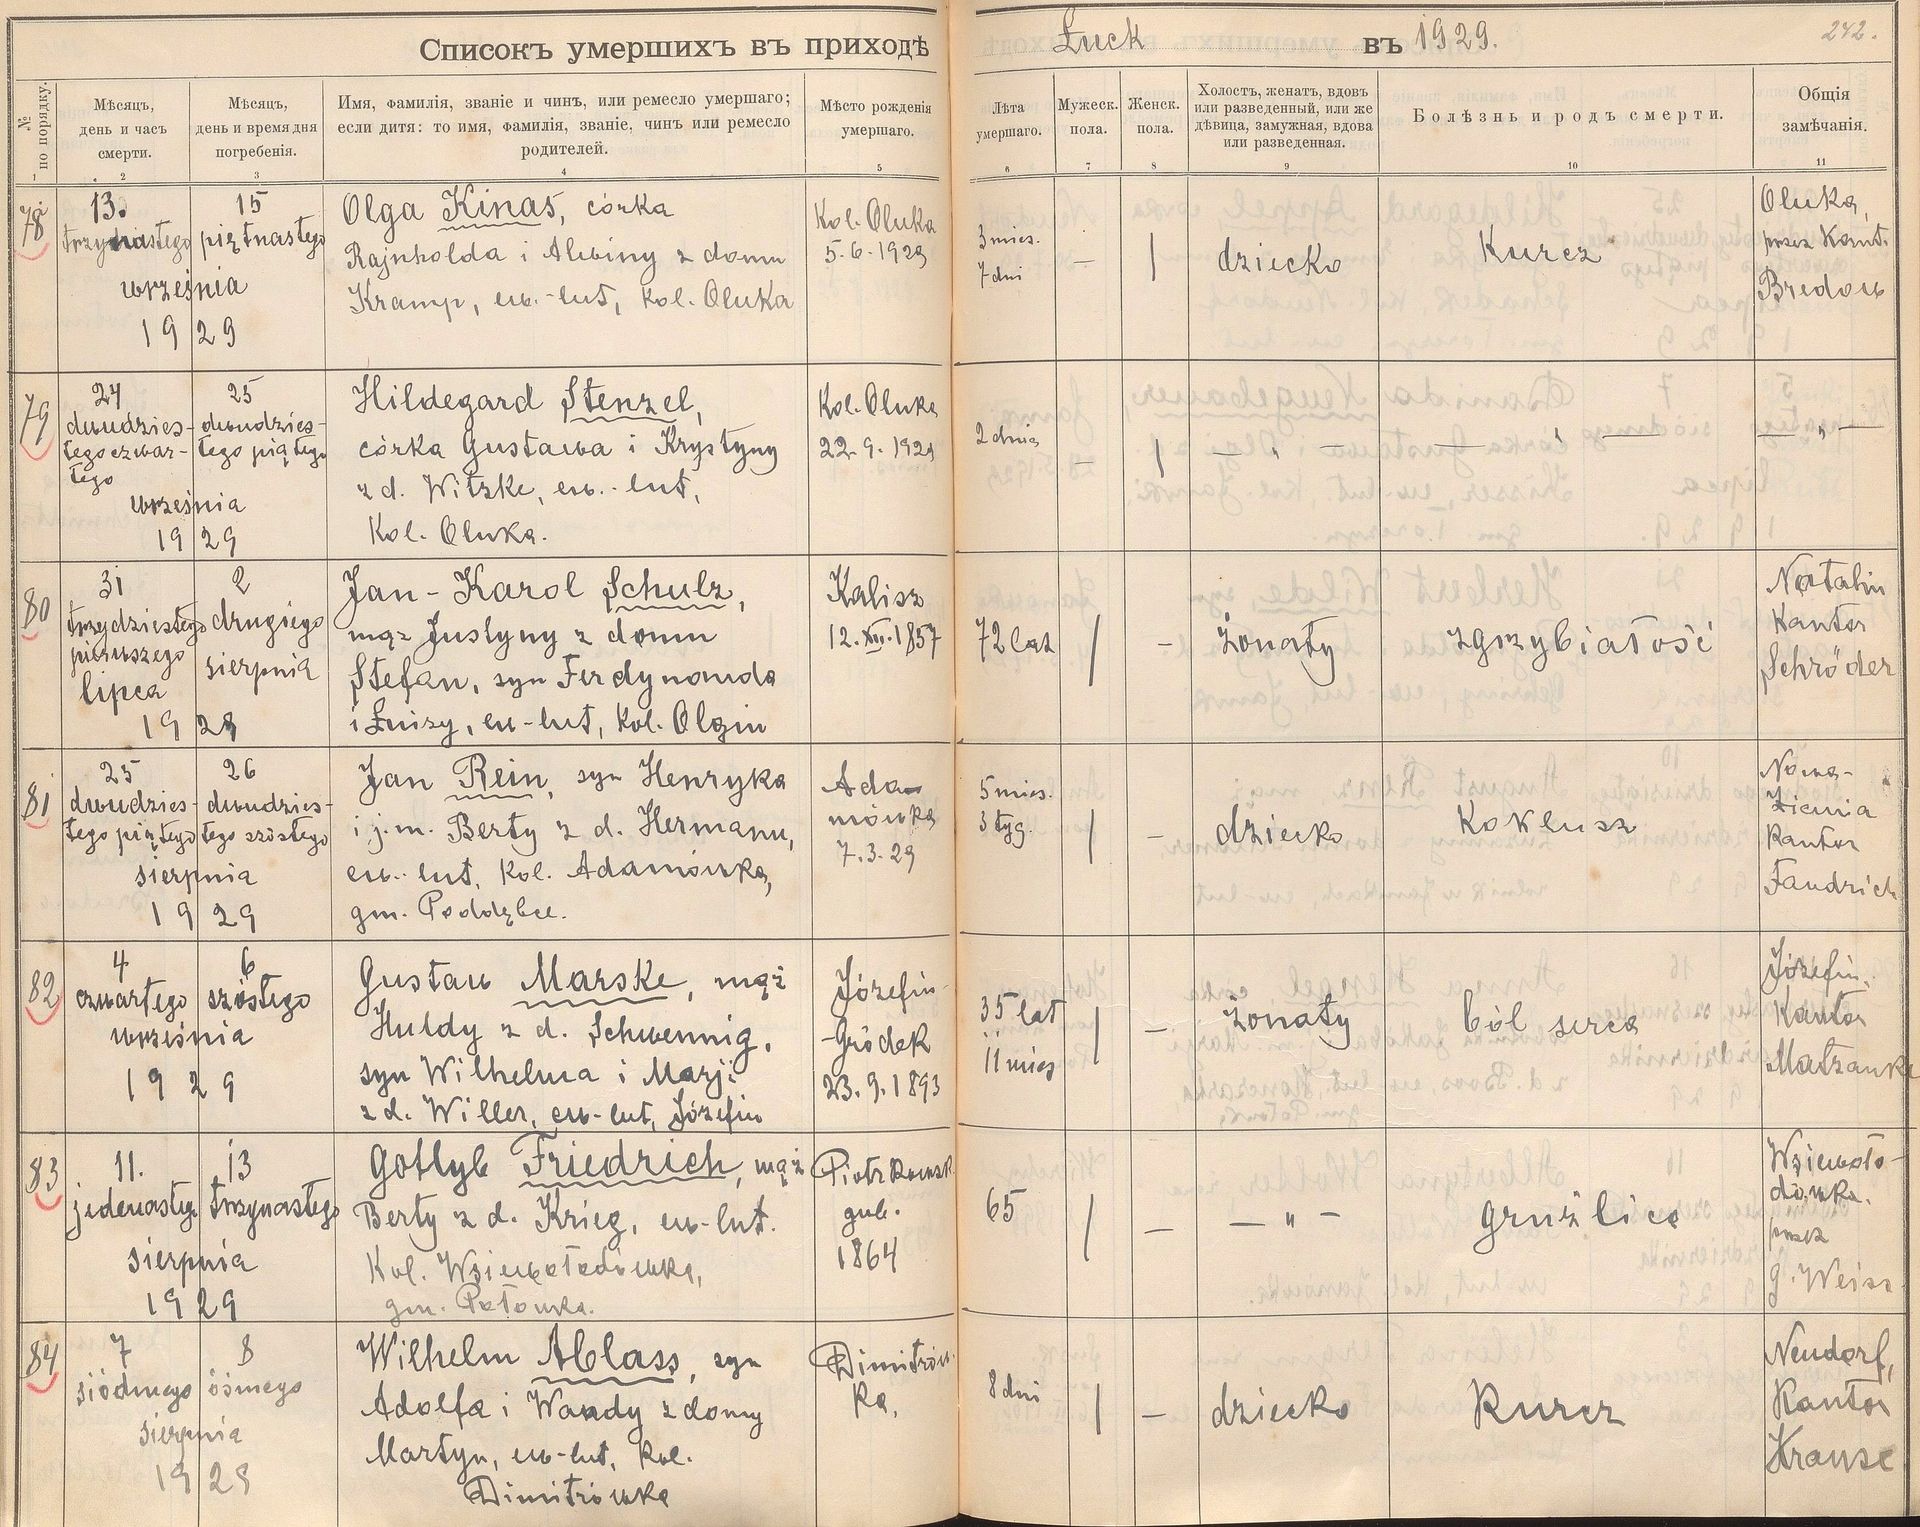 Списокъ умершихъ въ приходѣ Łuck въ 1929.
242.
№ по порядку.
Мѣсяцъ, день и часъ смерти.
Мѣсяцъ, день и время дня погребенія.
Имя, фамилія, званіе и чинъ, или ремесло умершаго;
если дитя: то имя, фамилія, званіе, чинъ или ремесло
родителей.
Мѣсто рожденія
умершаго.
Лѣта
умершаго.
Мужеск.
пола.
Женск.
пола.
Холостъ, женатъ, вдовъ
или разведенный, или же
дѣвица, замужная, вдова
или разведенная.
Болѣзнь и родъ смерти.
Общія
замѣчанія.
1 2 3 4 5 6 7 8 9 10 11
78
13.
trzynastego
15
piętnastego
września
1929
Olga Kinas, córka
Rajnholda i Alwiny z domu
Kramp, ew.-lut, kol. Ołyka
Kol. Ołyka
5.6.1929
3 mies.
7 dni
—
|
dziecko
Kurcz
Ołyka,
przez Kant.
Bredow
79
24
dwudzies-
tego czwar-
tego
25
dwudzies-
tego piątego
września
1929
Hildegard Stenzel,
córka Gustawa i Krystyny
z d. Witzke, ew.-lut,
Kol. Ołyka.
Kol. Ołyka
22.9.1929
2 dnia
—
|
— " — — " —
— " —
80
31
trzydziestego
pierwszego
lipca
2
drugiego
sierpnia
1929
Jan-Karol Schulz,
mąż Justyny z domu
Stefan, syn Ferdynanda
i Luizy, ew-lut, kol. Olgin
Kalisz
12.XII.1857
72 lat
|
—
żonaty
zgrzybiałość
Natalin
Kantor
Schröder
81
25
dwudzies-
tego piątego
26
dwudzies-
tego szóstego
sierpnia
1929
Jan Rein, syn Henryka
i j.m. Berty z d. Hermann,
ew.-lut, kol. Adamówka,
gm. Poddębce.
Ada-
mówka
7.3.29
5 mies.
3 tyg.
|
—
dziecko
Koklusz
Nowa-
Ziemia
Kantor
Faudrich
82
4
czwartego
6
szóstego
września
1929
Gustaw Marske, mąż
Huldy z d. Schwennig,
syn Wilhelma i Marji
z d. Willer, ew-lut, Józefin
Józefin-
-Gródek
23.9.1893
35 lat
11 mies
|
—
żonaty
ból serca
Józefin.
Kantor
Matzanke
83
11.
jedenastego
13
trzynastego
sierpnia
1929
Gotlyb Friedrich, mąż
Berty z d. Krieg, ew-lut.
Kol. Wsiewołodówka,
gm. Połonka.
Piotrkowsk.
gub.
1864
65
|
—
— " —
gruźlica
Wsiewoło-
dówka.
przez
G. Weiss
84
7
siódmego
8
ósmego
sierpnia
1929
Wilhelm Ablass, syn
Adolfa i Wandy z domu
Martyn, ew-lut, kol.
Dimitrówka
Dimitrów-
ka,
8 dni
|
—
dziecko
Kurcz
Neudorf,
Kantor
Krause